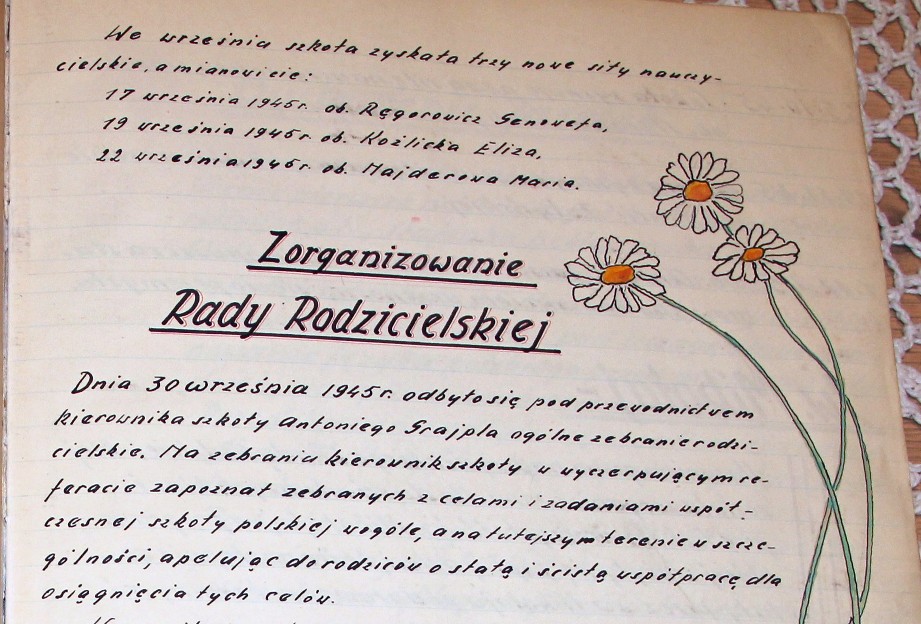 We wrześniu szkoła zyskała trzy nowe siły nauczy-
cielskie, a mianowicie:
17 września 1945 r. ob. Ręgorowicz Genowefa,
19 września 1945 r. ob. Koźlicka Eliza,
22 września 1945 r. ob. Majderowa Maria.
Zorganizowanie
Rady Rodzicielskiej
Dnia 30 września 1945 r. odbyło się pod przewodnictwem
kierownika szkoły Antoniego Grajpla ogólne zebranie rodzi-
cielskie. Na zebraniu kierownik szkoły w wyczerpującym re-
feracie zapoznał zebranych z celami i zadaniami współ-
czesnej szkoły polskiej wogóle, a na tutejszym terenie w szcze-
gólności, apelując do rodziców o stałą i ścisłą współpracę dla
osiągnięcia tych celów.